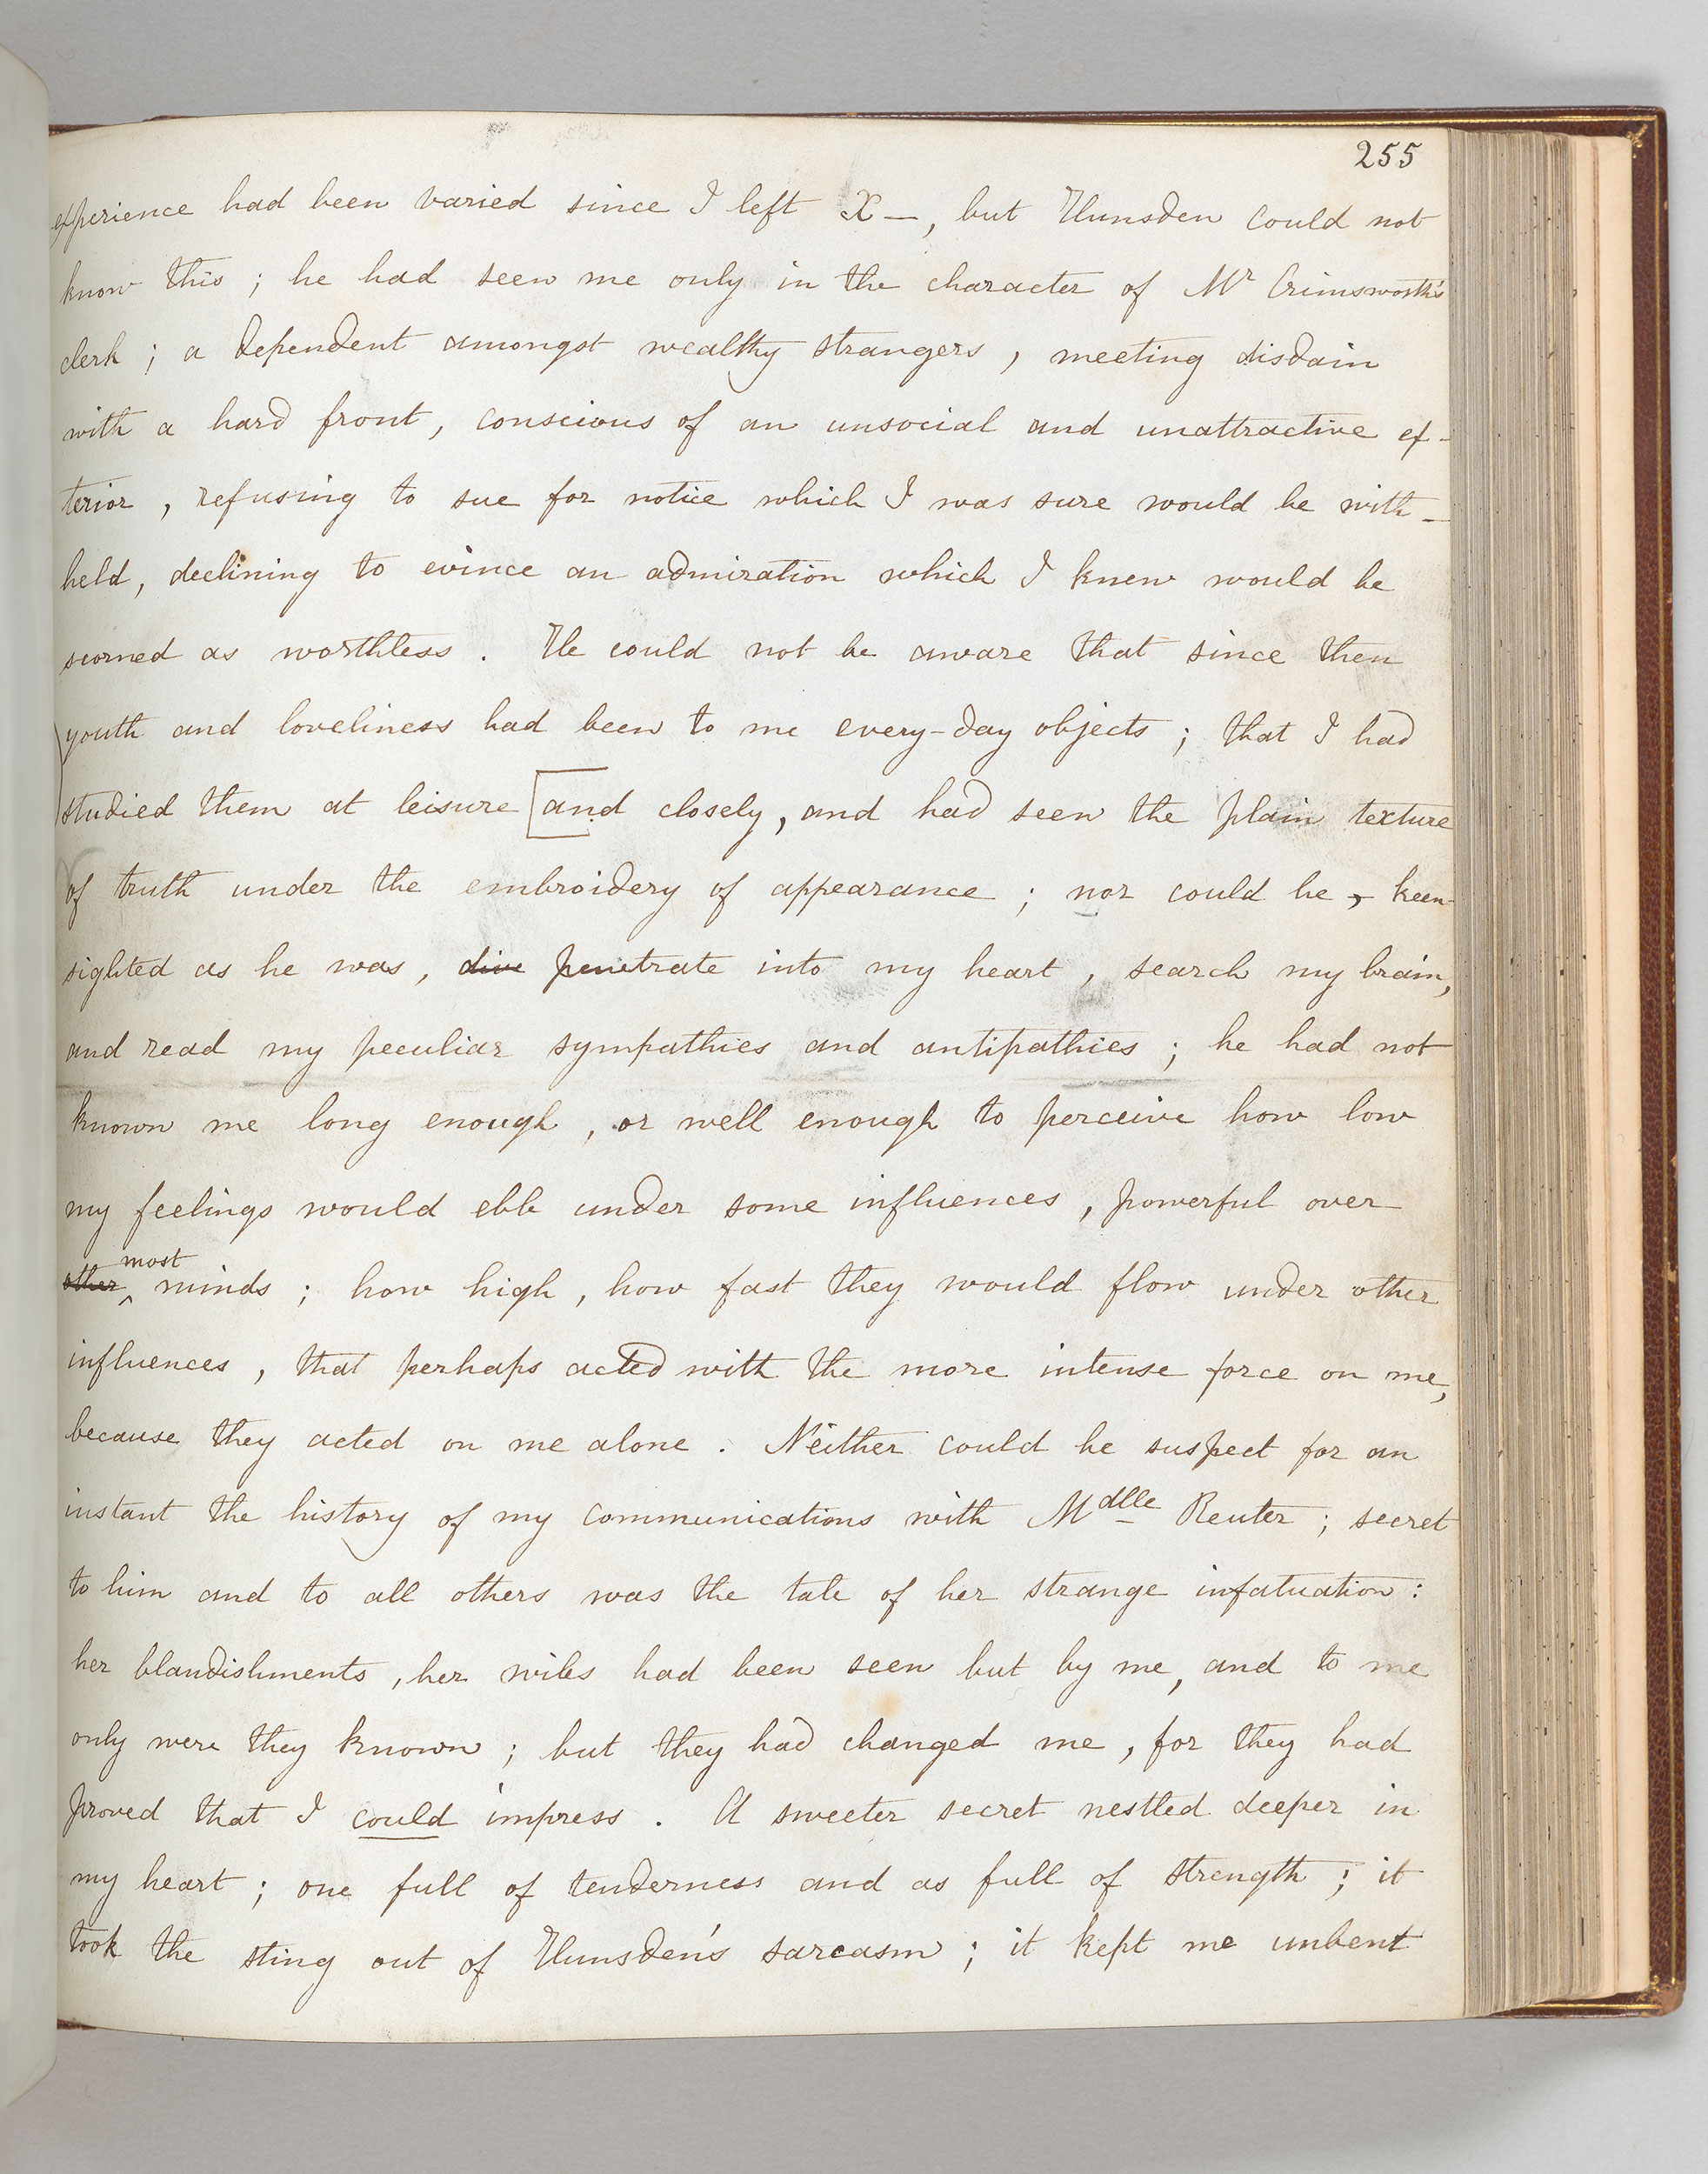 255
experience had been varied since I left X—, but Hunsden could not
know this ; he had seen me only in the character of Mr Crimsworth's
clerk ; a dependent amongst wealthy strangers , meeting disdain
with a hard front , conscious of an unsocial and unattractive ex-
terior , refusing to sue for notice which I was sure would be with-
held, declining to evince an admiration which I knew would be
scorned as worthless . He could not be aware that since then
youth and loveliness had been to me every-day objects ; that I had
studied them at leisure [and closely, and had seen the plain texture
of truth under the embroidery of appearance ; nor could he , keen-
sighted as he was , dive penetrate into my heart , search my brain,
and read my peculiar sympathies and antipathies ; he had not
known me long enough , or well enough to perceive how low
my feelings would ebb under some influences , powerful over
most
other ^ minds ; how high , how fast they would flow under other
influences , that perhaps acted with the more intense force on me,
because they acted on me alone . Neither could he suspect for an
instant the history of my communications with Mdlle Reuter ; secret
to him and to all others was the tale of her strange infatuation :
her blandishments , her wiles had been seen but by me, and to me
only were they known ; but they had changed me , for they had
proved that I could impress . A sweeter secret nestled deeper in
my heart ; one full of tenderness and as full of strength ; it
took the sting out of Hunsden's sarcasm ; it kept me unbent